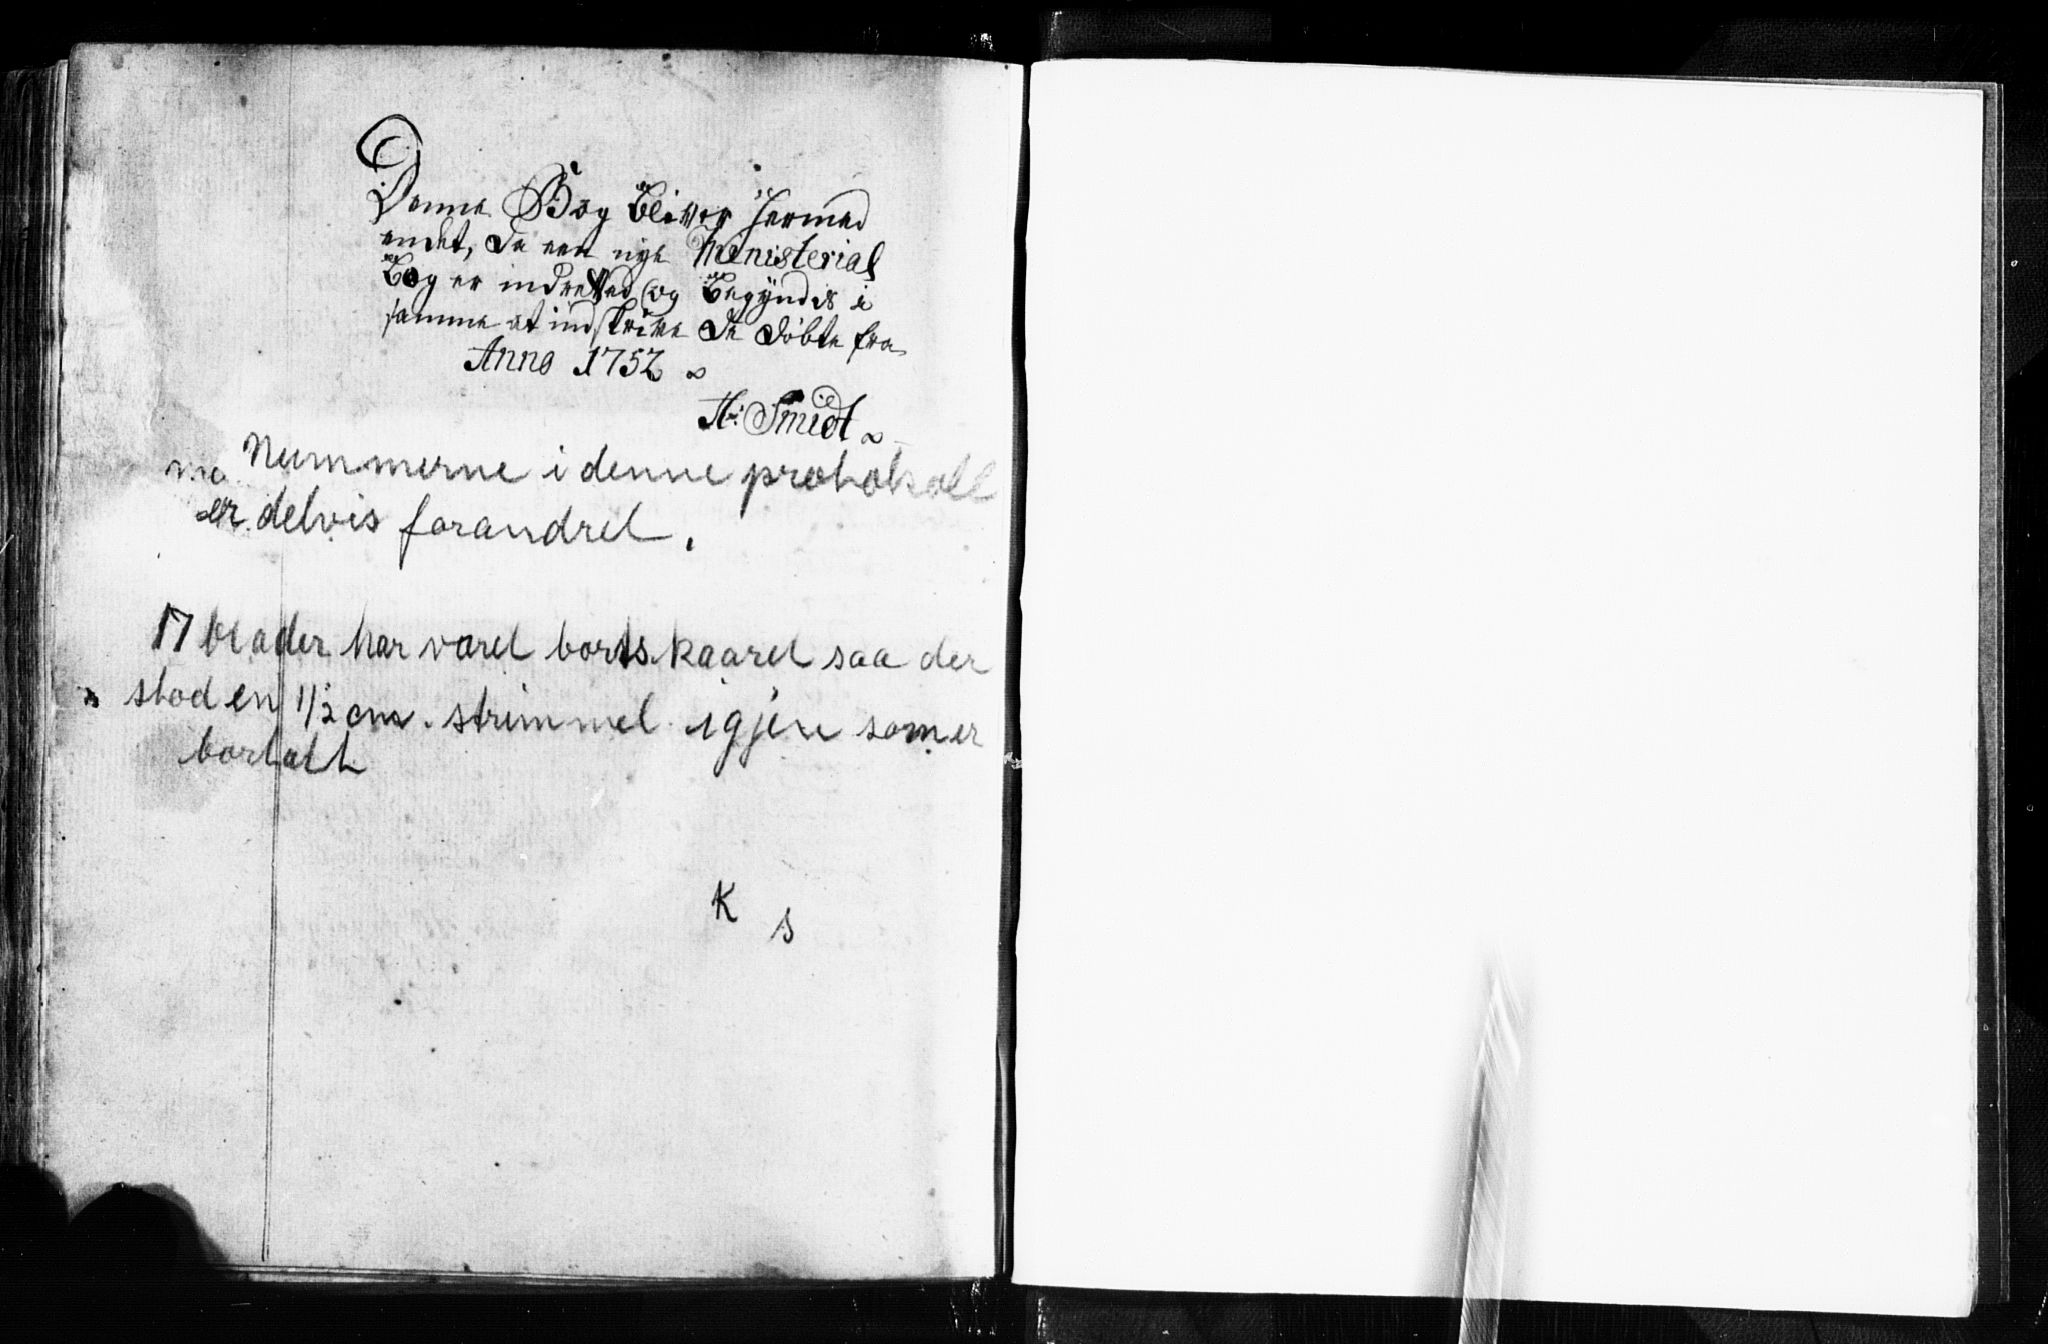 Denne Bog bliver hermed
endet, da een nye Ministerial
Bog er indretted og begyndis i
samme at indskrive de døbte fra
Anno 1752
H: Smidt
Nummerne i denne protokoll
er delvis forandret.
17 blader har været bortskaaret saa der
stod en 1 1/2 cm. strimmel igjen som er
bortatt
K
s